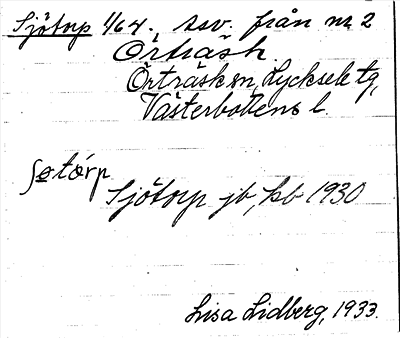 Sjötorp 1/64. avs. från nr 2
Örträsk
Örträsk sn, Lycksele tg,
Västerbottens l.
ʃøtórp
Sjötorp jb, kb 1930
Lisa Lidberg, 1933.